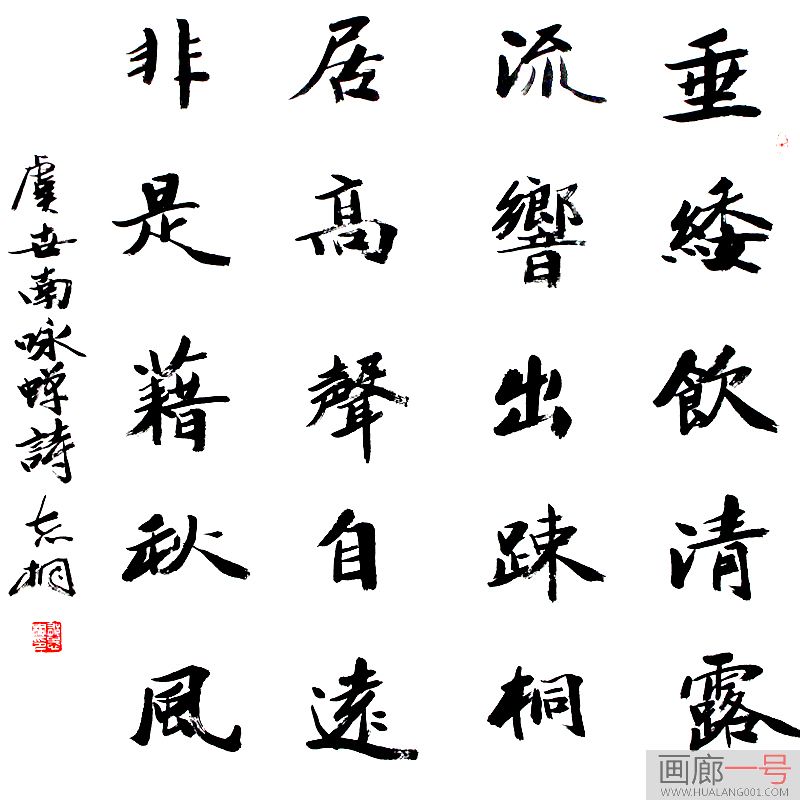 垂緌飲清露
流響出踈桐
居高聲自遠
非是藉秋風
虞世南咏蟬詩 志桐
画廊一号
WWW.HUALANG001.COM